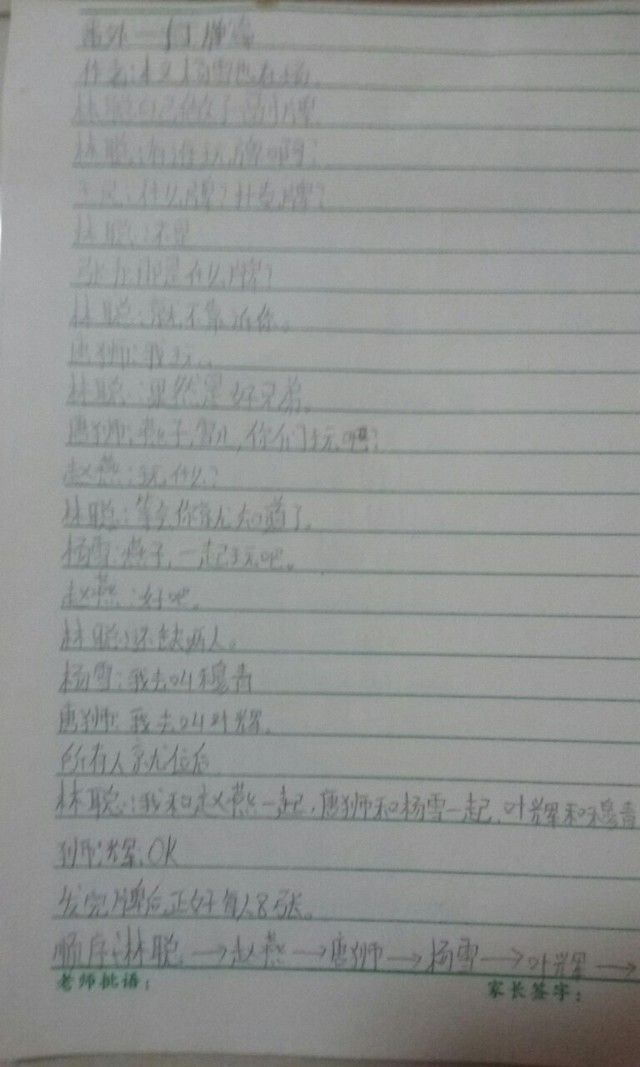 番外一 打牌篇
林聪自己做了一副牌
林聪:有谁玩牌啊?
什么牌?扑克牌?
林聪:不是
那是什么牌?
林聪:就不告诉你。
唐狮:我玩..
林聪:果然是好兄弟。
唐狮:燕子,雪儿,你们玩吗?
赵燕:玩什么?
林聪:等会你就知道了。
杨雪:燕子,一起玩吧。
赵燕:好吧。
林聪:还缺两人。
杨雪:我去叫穆青
唐狮:我去叫叶辉.
所有人就位后
林聪:我和赵燕一起,唐狮和杨雪一起,叶辉和穆青
狮,辉:OK
发完牌后,正好每人8张。
顺序:林聪→赵燕→唐狮→杨雪→叶辉→
老师批语: 家长签字: